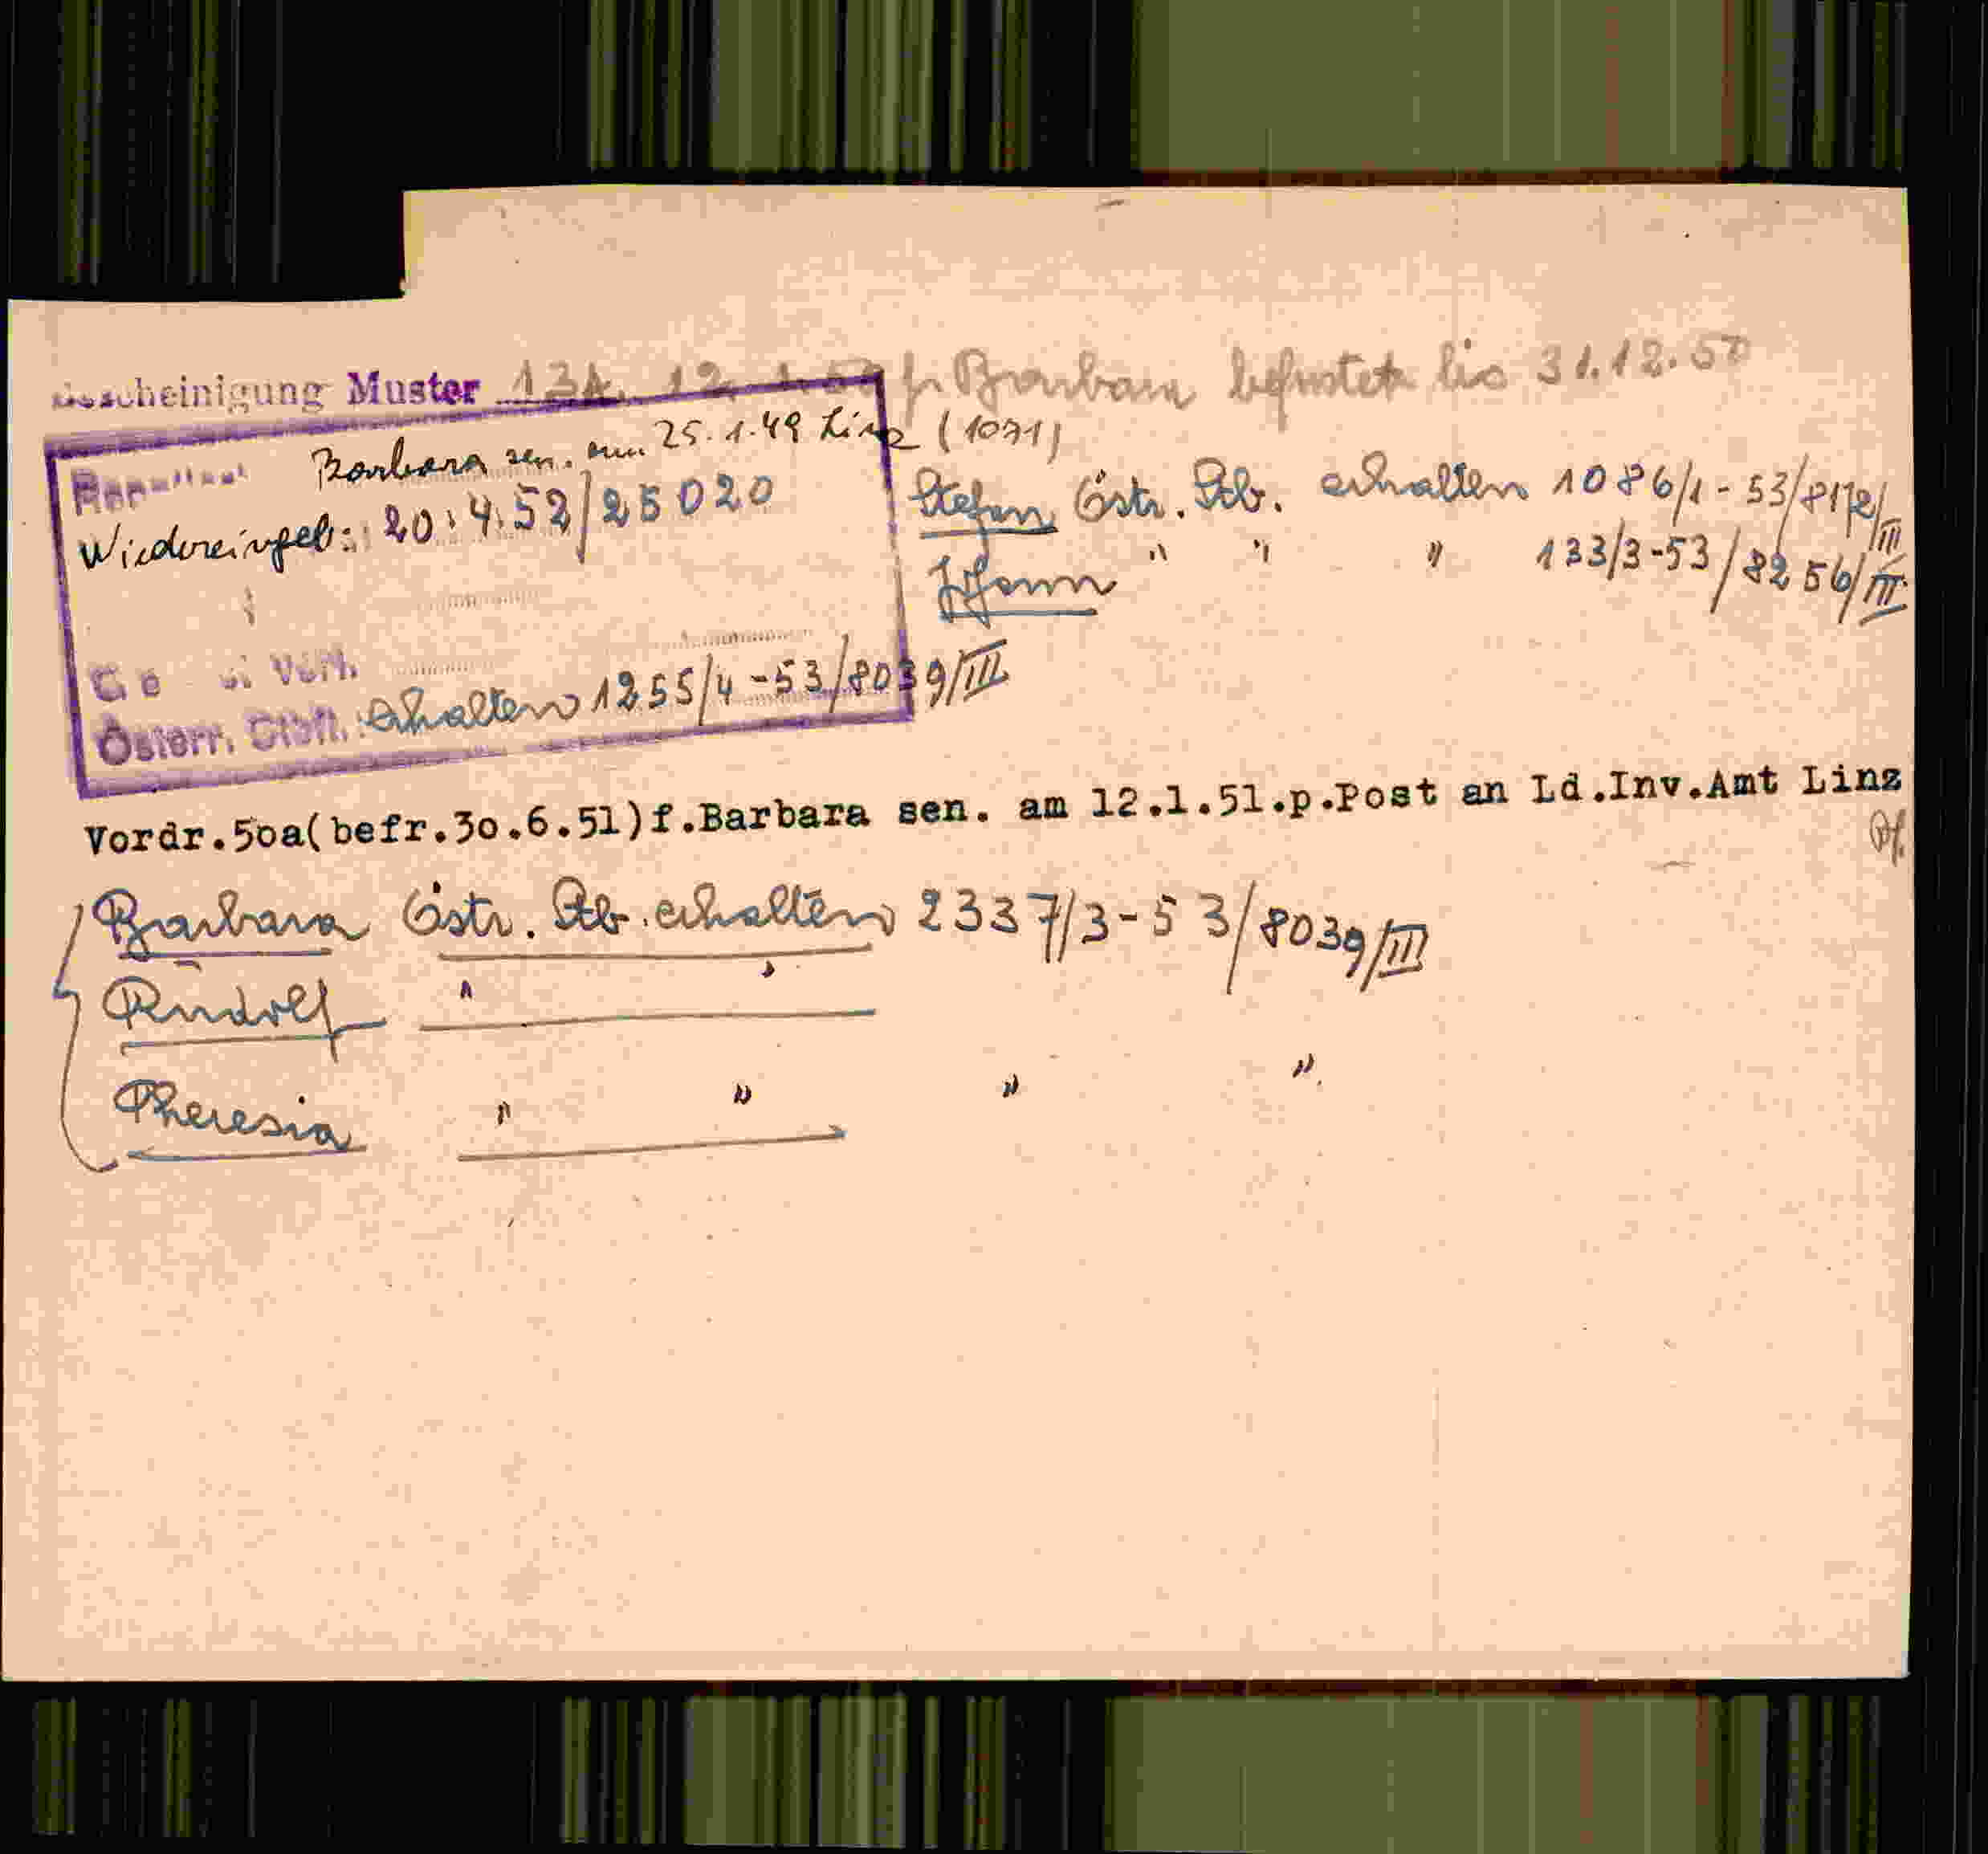 Bescheinigung Muster 13A. 12. 1.50 f. Barbara befristet bis 31.12.50
Barbara sen. am 25.1.49 Linz (1071)
Wiedereingeb.: 20.4.52/25020
Stefan Östr. Stb. erhalten 1086/1-53/8172/III
Johann " " " 133/3-53/8256/III
Verh.
Österr. Stbft. erhalten 1255/4-53/8039/III
Vordr.50a(befr.30.6.51)f.Barbara sen. am 12.1.51.p.Post an Ld.Inv.Amt Linz
Barbara Östr. Stb. erhalten 2337/3-53/8039/III
Rudolf " "
Theresia " " " "